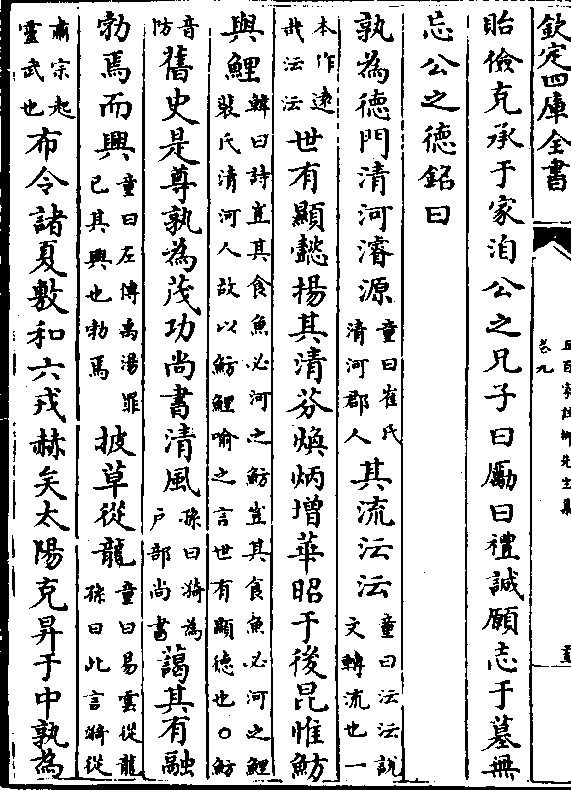 欽定四庫全書
卷九
貽儉克承于家洎公之兄子曰勵曰禮誠願志于墓無
忘公之德銘曰
孰為德門清河濬源童曰崔氏清河郡人其流沄沄童曰沄沄說文轉流也一
本作遠哉沄沄世有顯懿揚其清芬煥炳增華昭于後昆惟魴
與鯉韓曰詩豈其食魚必河之魴豈其食魚必河之鯉裴氏清河人故以魴鯉喻之言世有顯德也○魴
音防舊史是尊孰為茂功尚書清風孫曰猗為戶部尚書藹其有融
勃焉而興童曰左傳禹湯罪己其興也勃焉披草從龍童曰易雲從龍孫曰此言猗從
肅宗起靈武也布令諸夏敷和六戎赫矣太陽克昇于中孰為